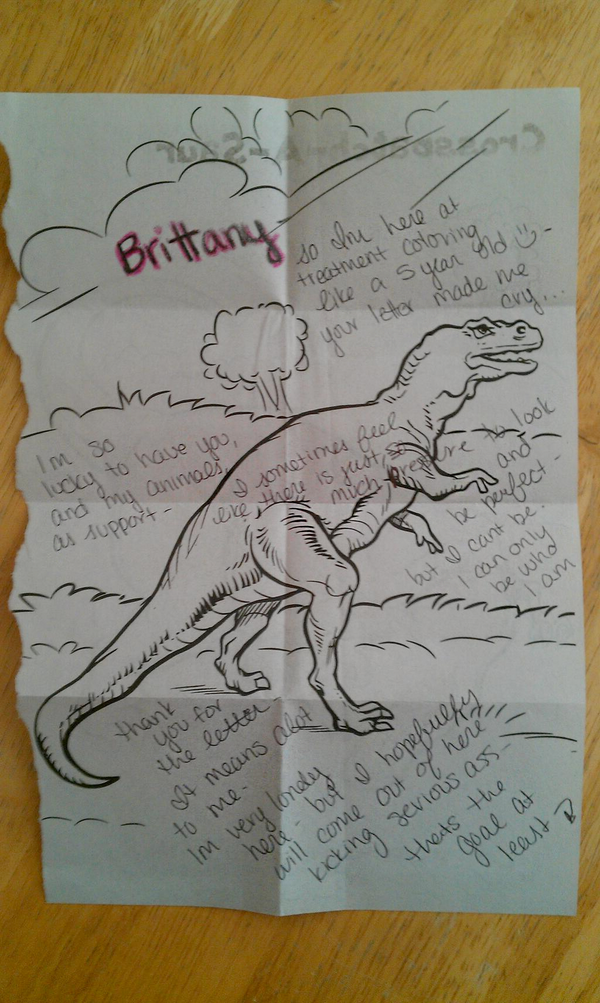 Crosspatch-A-Saur
Brittany
so Im here at
treatment coloring
like a 5 year old
your letter made me
cry...
Im so
lucky to have you,
and my animals,
as support-
I sometimes feel
like there is just so
much pressure to look
and
be perfect-
but I cant be.
I can only
be who
I am
thank
you for
the letter
It means alot
to me-
Im very lonely
here- but I hopefully
will come out of here
kicking serious ass-
thats the
goal at
least